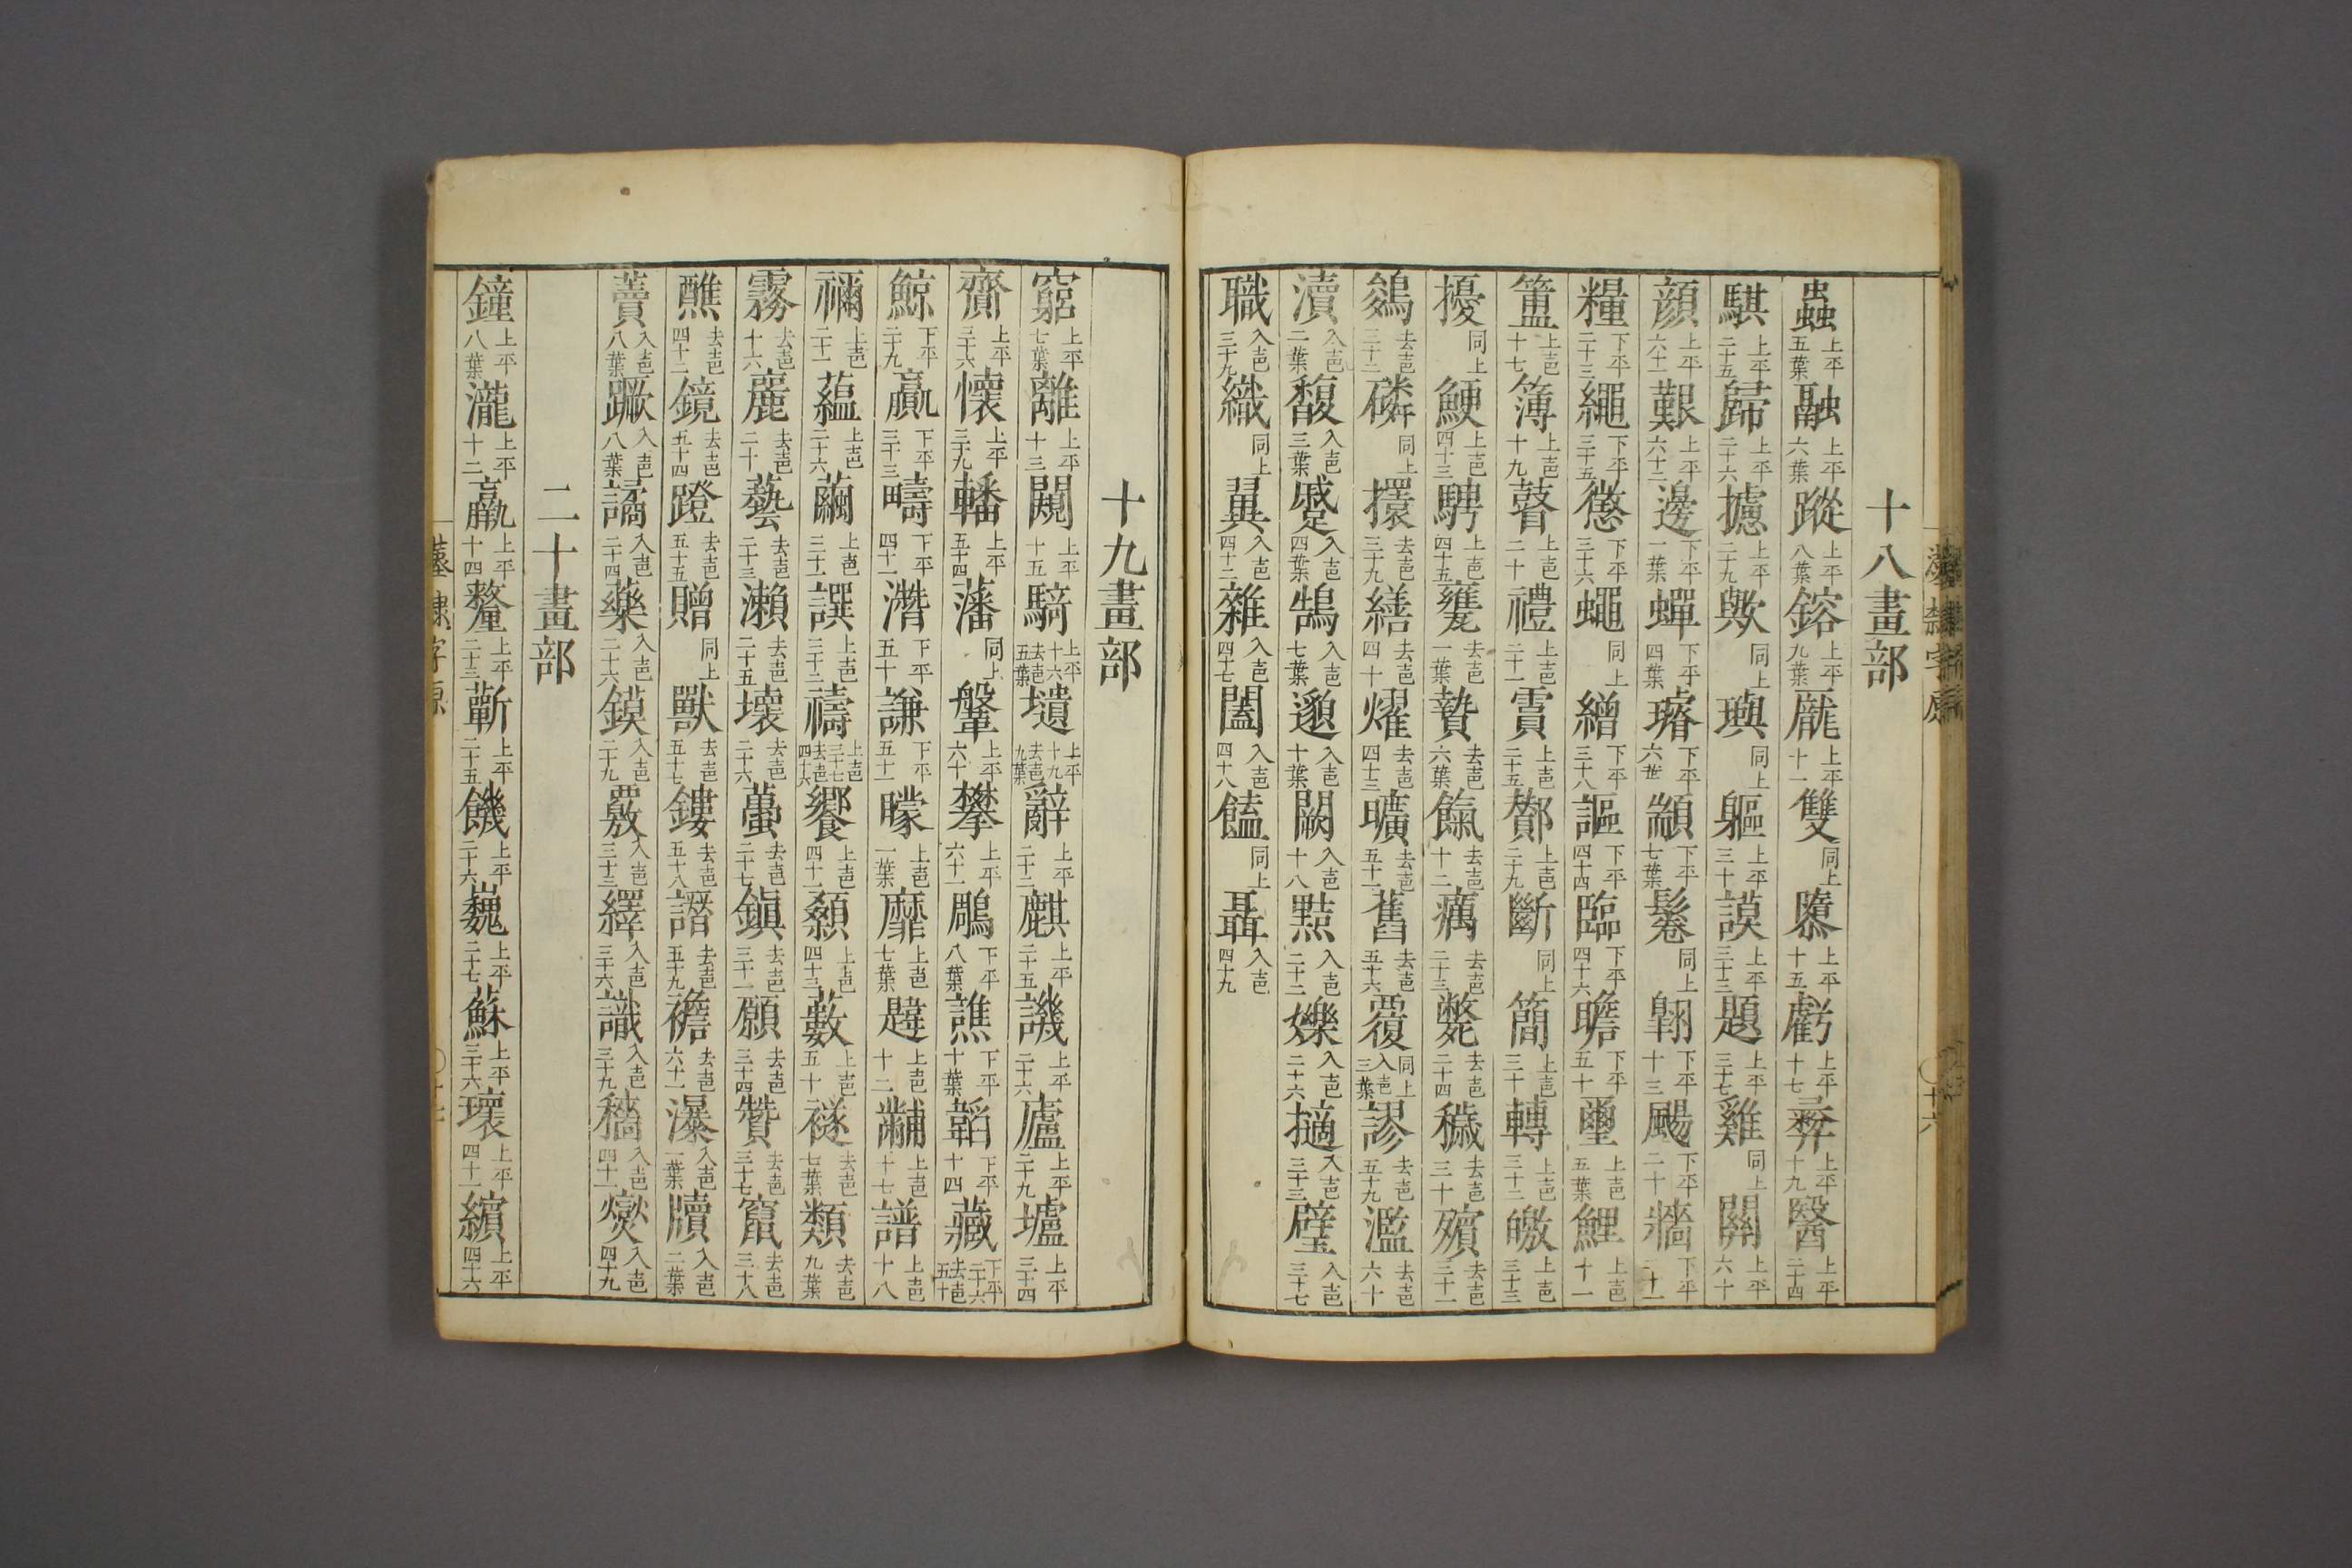 十八畫部
蟲上平五葉融上平六葉蹤上平八葉鎔上平九葉龐上平十一雙同上隳上平十五虧上平十七彝上平十九醫上平二十四
騏上平二十五歸上平二十六攄上平二十九歟同上璵同上軀上平三十謨上平三十三題上平三十七雞同上關上平六十
顏上平六十一艱上平六十二邊下平一葉蟬下平四葉璿下平六葉顓下平七葉鬈同上翺下平十三颺下平二十牆下平二十一
糧下平二十三繩下平三十五懲下平三十六蠅同上繒下平三十八謳下平四十四臨下平四十六瞻下平五十璽上聲五葉鯉上聲十一
簠上聲十七簿上聲十九瞽上聲二十禮上聲二十一賷上聲二十五鄼上聲二十九斷同上簡上聲三十轉上聲三十二皦上聲三十三
擾同上鯁上聲四十三騁上聲四十五甕去聲一葉贄去聲六葉餼去聲十二癘去聲二十三斃去聲二十四穢去聲三十殯去聲三十一
鷄去聲三十二磷同上擐去聲三十九繕去聲四十燿去聲四十三曠去聲五十一舊去聲五十六覆同上入聲三葉謬去聲五十九濫去聲六十
瀆入聲二葉馥入聲三葉蹙入聲四葉鵠入聲七葉邈入聲十葉闕入聲十八黠入聲二十二爍入聲二十六擿入聲三十三璧入聲三十七
職入聲三十九織同上翼入聲四十二雜入聲四十七闔入聲四十八饁同上聶入聲四十九
十九畫部
窮上平七葉離上平十三闚上平十五騎上平十六去聲五葉壝上平十九去聲九葉辭上平二十二麒上平二十五譏上平二十六廬上平二十九壚上平三十四
齎上平三十六懷上平三十九轓上平五十四藩同上鞶上平六十攀上平六十一鵰下平八葉譙下平十葉韜下平十四藏下平二十六去聲五十
鯨下平二十九贏下平三十三疇下平四十一潛下平五十謙下平五十一矇上聲一葉靡上聲七葉韙上聲十二黼上聲十七譜上聲十八
禰上聲二十一蘊上聲二十六繭上聲三十一譔上聲三十二禱上聲三十七去聲四十六饗上聲四十一顙上聲四十三藪上聲五十襚去聲七葉類去聲九葉
霧去聲十六麗去聲二十藝去聲二十三瀨去聲二十五壞去聲二十六蠆去聲二十七鎮去聲三十一願去聲三十四贊去聲三十七竄去聲三十八
醮去聲四十二鏡去聲五十四蹬去聲五十五贈同上獸去聲五十七鏤去聲五十八譖去聲五十九襜去聲六十一瀑入聲一葉牘入聲二葉
藚入聲八葉蹶入聲八葉譎入聲二十四藥入聲二十六鏌入聲二十九覈入聲三十三繹入聲三十六識入聲三十九穡入聲四十一爕入聲四十九
二十畫部
鐘上平八葉瀧上平十二羸上平十四釐上平二十三蘄上平二十五饑上平二十六巍上平二十七蘇上平三十六瓌上平四十一繽上平四十六